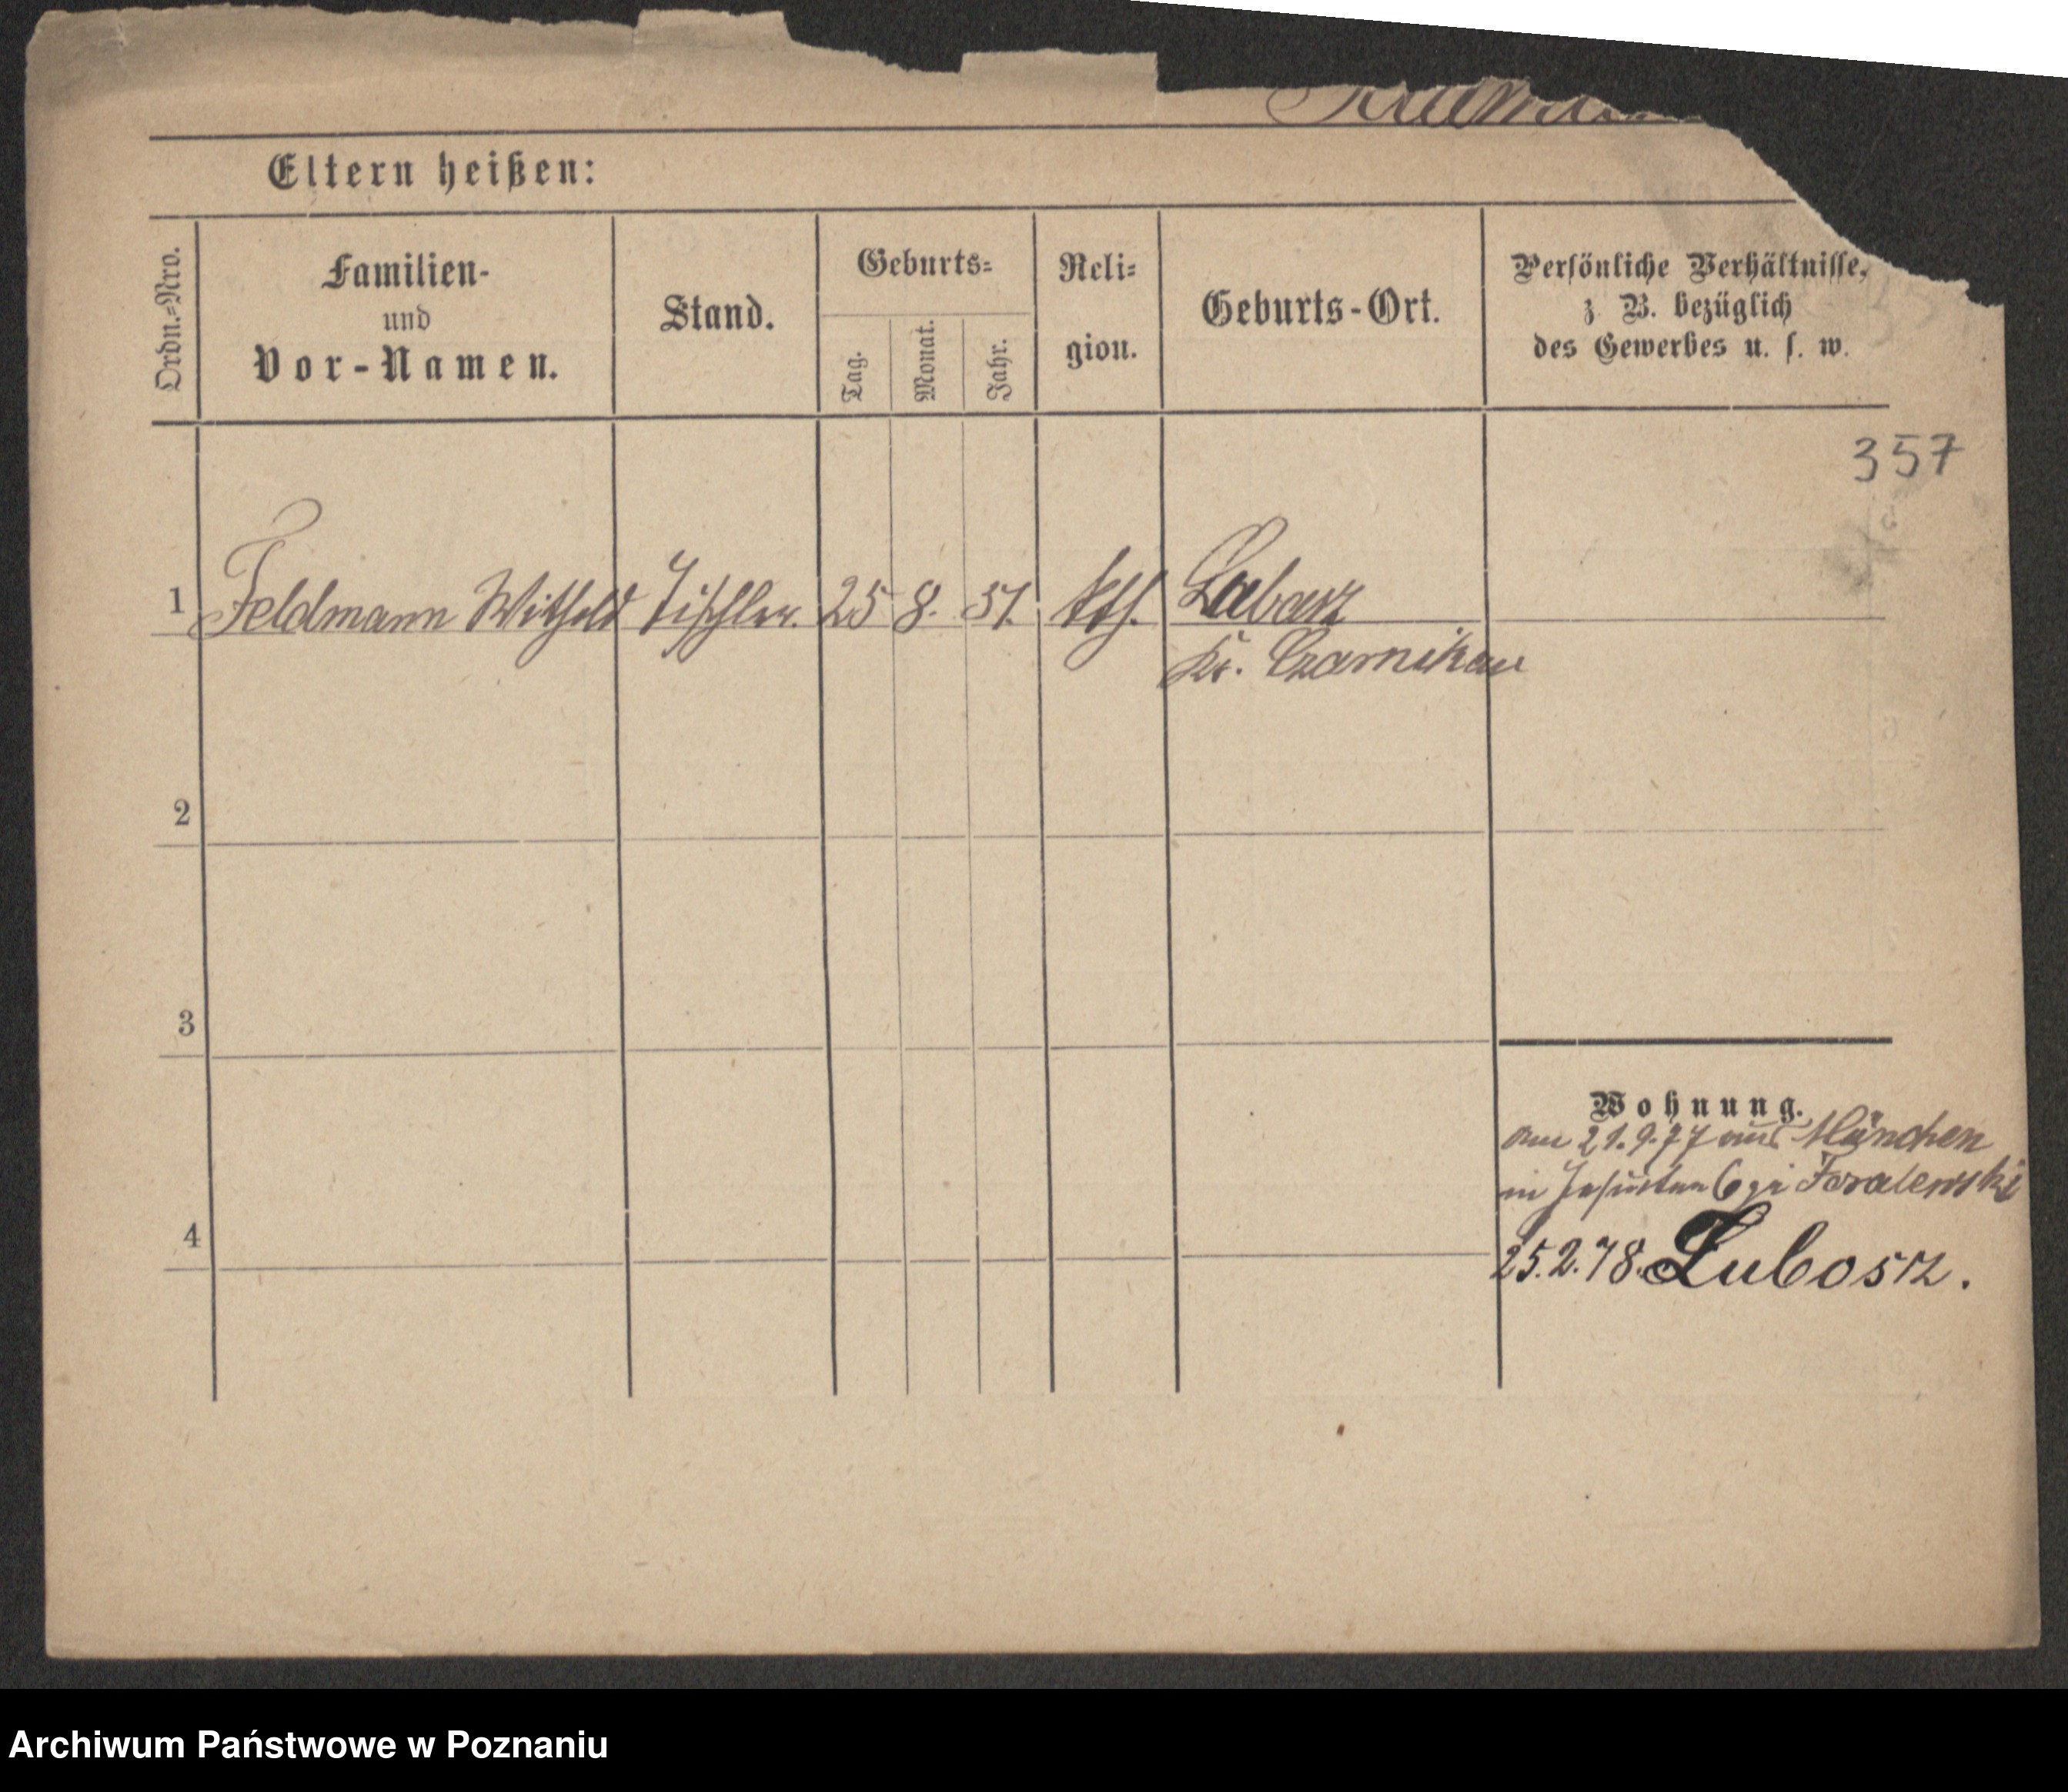 Eltern heißen:
Ordn.-Nro.
Familien-
und
Vor-Namen.
Stand.
Geburts-
Tag.
Monat.
Jahr.
Reli-
gion.
Geburts-Ort.
Persönliche Verhältnisse,
z. B. bezüglich
des Gewerbes u. s. w.
357
1 Feldmann Withold Tischler. 25 8. 51. kth.
Kr. Czarnikau
2
3
4
Wohnung.
am 21.9.77 aus München
in Jesuiten
25.2.78. Lubosz.
Archiwum Państwowe w Poznaniu